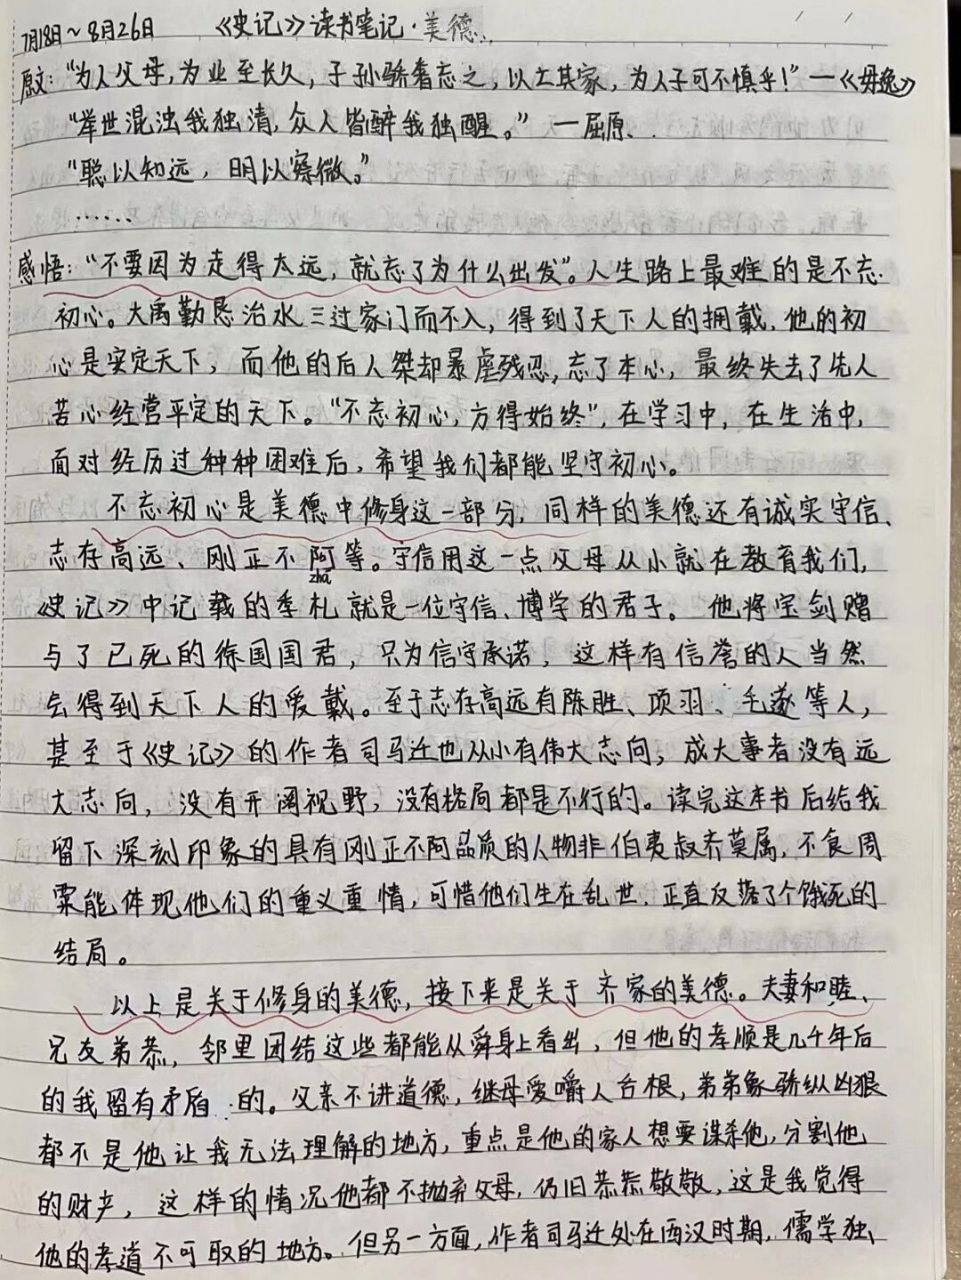 7月18日~8月26日 《史记》读书笔记·美德
原文:“为人父母,为业至长久,子孙骄奢忘之,以亡其家,为人子可不慎乎!”—《毋逸》
“举世混浊我独清,众人皆醉我独醒。” —屈原、
“聪以知远,明以察微。”
……
感悟:“不要因为走得太远,就忘了为什么出发”。人生路上最难的是不忘
初心。大禹勤恳治水三过家门而不入,得到了天下人的拥戴,他的初
心是安定天下,而他的后人桀却暴虐残忍,忘了本心,最终失去了先人
苦心经营平定的天下。“不忘初心,方得始终”,在学习中,在生活中,
面对经历过种种困难后,希望我们都能坚守初心。
不忘初心是美德中修身这一部分,同样的美德还有诚实守信、
志存高远、刚正不阿等。守信用这一点父母从小就在教育我们,
zhá
《史记》中记载的季札就是一位守信、博学的君子。他将宝剑赠
与了已死的徐国国君,只为信守承诺,这样有信誉的人当然
会得到天下人的爱戴。至于志存高远有陈胜、项羽、毛遂等人,
甚至于《史记》的作者司马迁也从小有伟大志向,成大事者没有远
大志向,没有开阔视野,没有格局都是不行的。读完这本书后给我
留下深刻印象的具有刚正不阿品质的人物非伯夷叔齐莫属,不食周
粟能体现他们的重义重情,可惜他们生在乱世,正直反落了个饿死的
结局。
以上是关于修身的美德,接下来是关于齐家的美德。夫妻和睦、
兄友弟恭,邻里团结这些都能从舜身上看出,但他的孝顺是几千年后
的我留有矛盾的。父亲不讲道德,继母爱嚼人舌根,弟弟象骄纵凶狠
都不是他让我无法理解的地方,重点是他的家人想要谋杀他,分割他
的财产,这样的情况他都不抛弃父母,仍旧恭恭敬敬,这是我觉得
他的孝道不可取的地方。但另一方面,作者司马迁处在西汉时期,儒学独